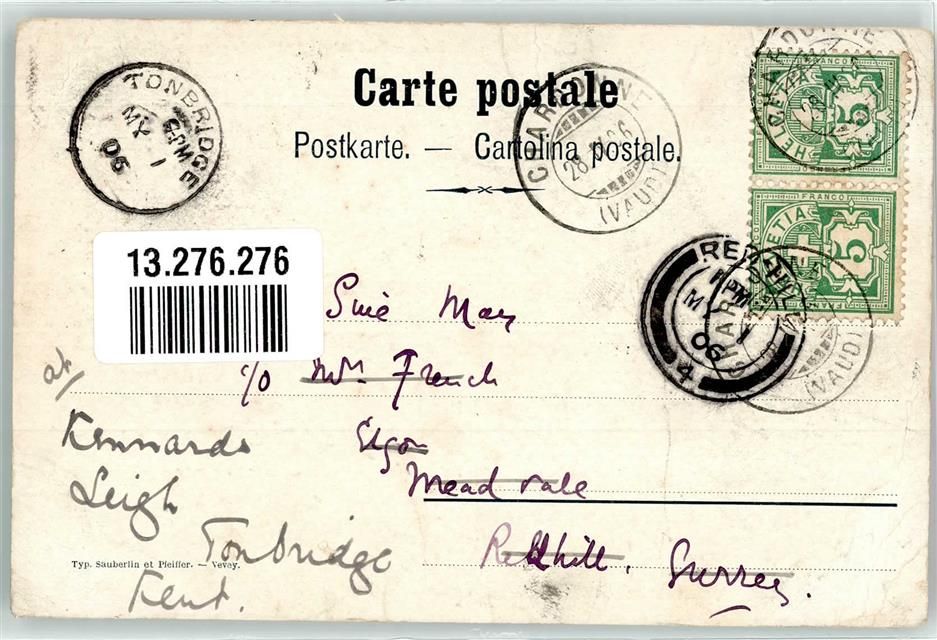 Carte postale
Postkarte. — Cartolina postale.
TONBRIDGE
4PM
MY 1
06
CHARDONNE
(VAUD)
FRANCO
HELVETIA
5
FRANCO
HELVETIA
5
REDHILL
PM
MY 1
06
4
(VAUD)
13.276.276
May
c/o Mrs. French
at/
Kennards
Leigh
Mead vale
Tonbridge
Redhill. Surrey.
Typ. Säuberlin et Pfeiffer. — Vevey.
Kent.